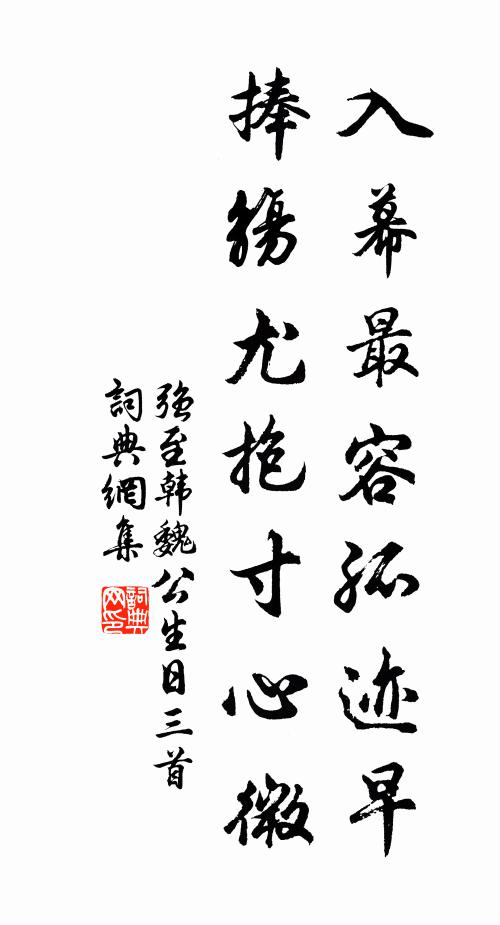 入幕最容孤迹早
捧觴尤抱寸心微
强至韩魏公生日三首
詞典網集
詞典网印